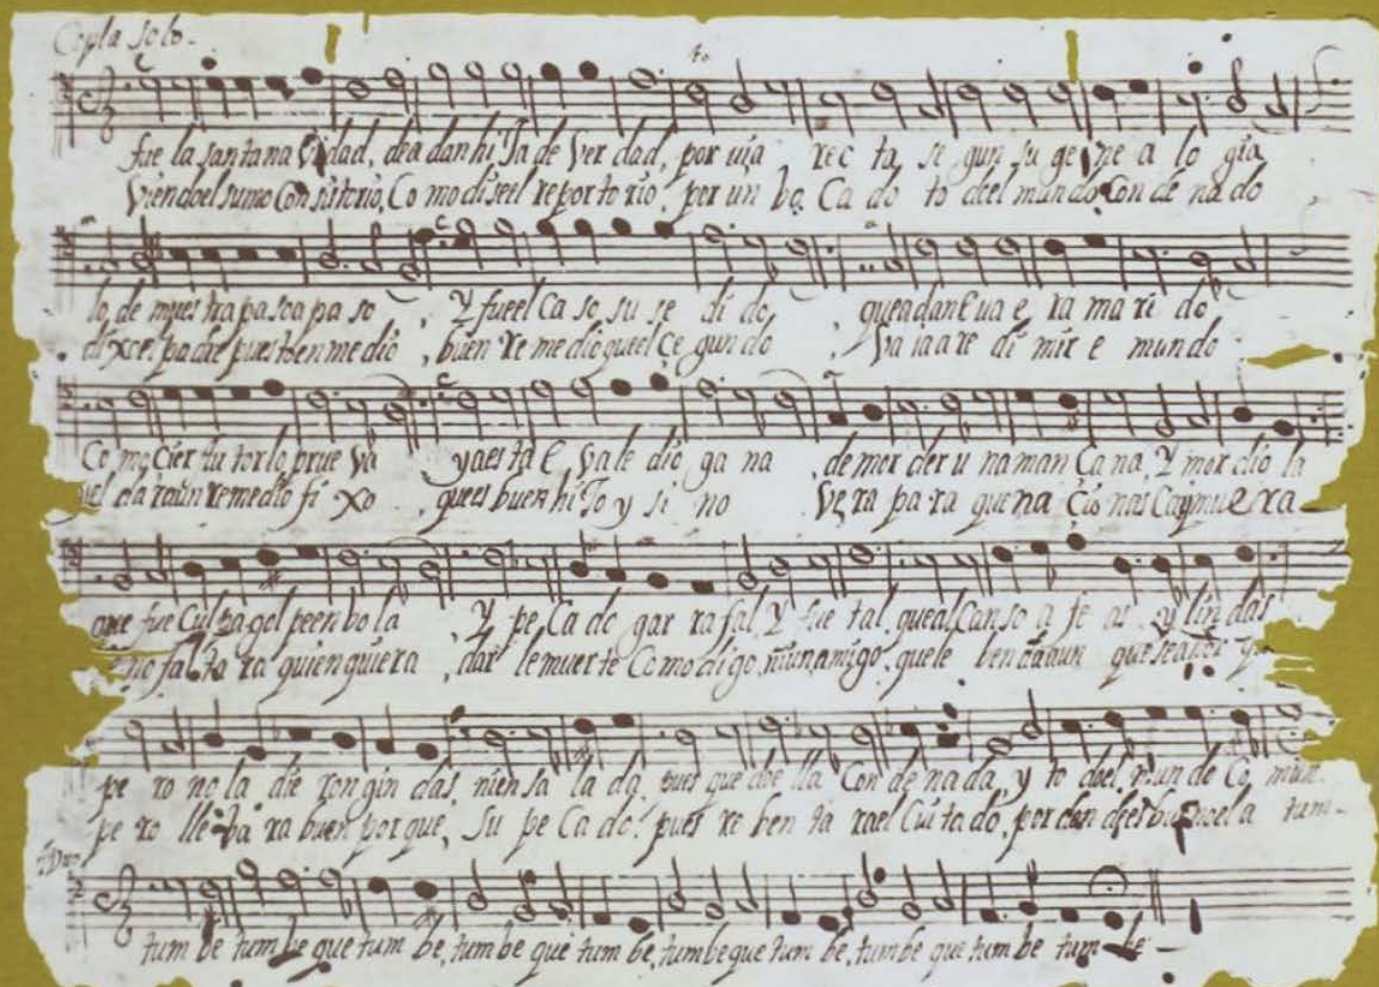 Copla solo.
fue la santa na vidad, de a dan hi Ja de Ver dad, por uia rec ta, se gun su ge ne a lo gia
Viendo el sumo Consistorio, Co mo dise el re por to rio, por un bo Ca do to do el mundo Con de na do
lo de mues tra pa so a pa so, Y fue el Ca so su se di do que a dan E ua e ra ma ri do
dixo el padre pues to en me dio, buen re me dio que el ce gun do Va ia a re di mir e mundo
Co mo Cier tu tor lo prue va ya es ta E va le dio ga na de mor der u na man Ca na, Y mor dio la
el da ra un remedio fi xo que es buen hi Jo y si no Ve ra pa ra que na Cio nas Ca y mue ra
que fue Cul pa gol pe en bo la, Y pe Ca do gar ra fal Y fue tal que al Can so a fe as y lin das
no fal ta ra quien quiera, dar le muer te Co mo di go, ni un a migo, que le aun que
pe ro no la die ron gin das, ni en sa la da, pues que do e lla Con de na da, y to do el mun do Co mun
pe ro lle va ra buen por que, Su pe Ca do, pues re ben ta ra el Cui ta do, por don de es bueno el a tum-
Duo
tum be tum be que tum be, tum be que tum be, tum be que tum be, tum be que tum be tum be